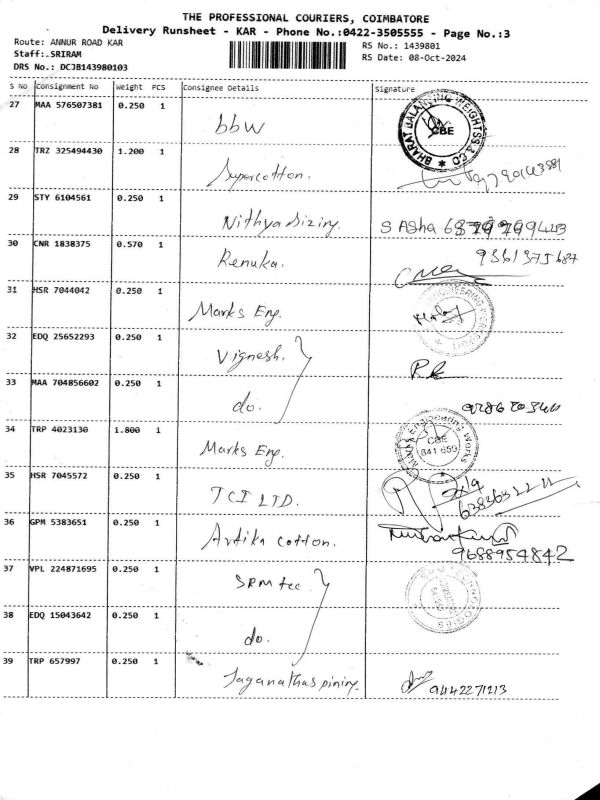 THE PROFESSIONAL COURIERS, COIMBATORE
Delivery Runsheet - KAR - Phone No.:0422-3505555 - Page No.:3
Route: ANNUR ROAD KAR
Staff:.SRIRAM
DRS No.: DCJB143980103
RS No.: 1439801
RS Date: 08-Oct-2024
S No Consignment No Weight PCS Consignee Details Signature
27 MAA 576507381 0.250 1 bbw
BHARAT BALANCING WEIGHTSS & CO CBE
28 TRZ 325494430 1.200 1 Supercotton.
29 STY 6104561 0.250 1 S Asha
30 CNR 1838375 0.570 1 Renuka. 9361375687
31 HSR 7044042 0.250 1 Marks Eng.
32 EDQ 25652293 0.250 1 Vignesh.
33 MAA 704856602 0.250 1 do.
34 TRP 4023130 1.800 1 Marks Eng.
Marks Engineering Works CBE 641 659
35 HSR 7045572 0.250 1 TCI LTD.
36 GPM 5383651 0.250 1 Artika cotton.
9688954842
37 VPL 224871695 0.250 1 SRM tec
38 EDQ 15043642 0.250 1 do.
39 TRP 657997 0.250 1 9442271213